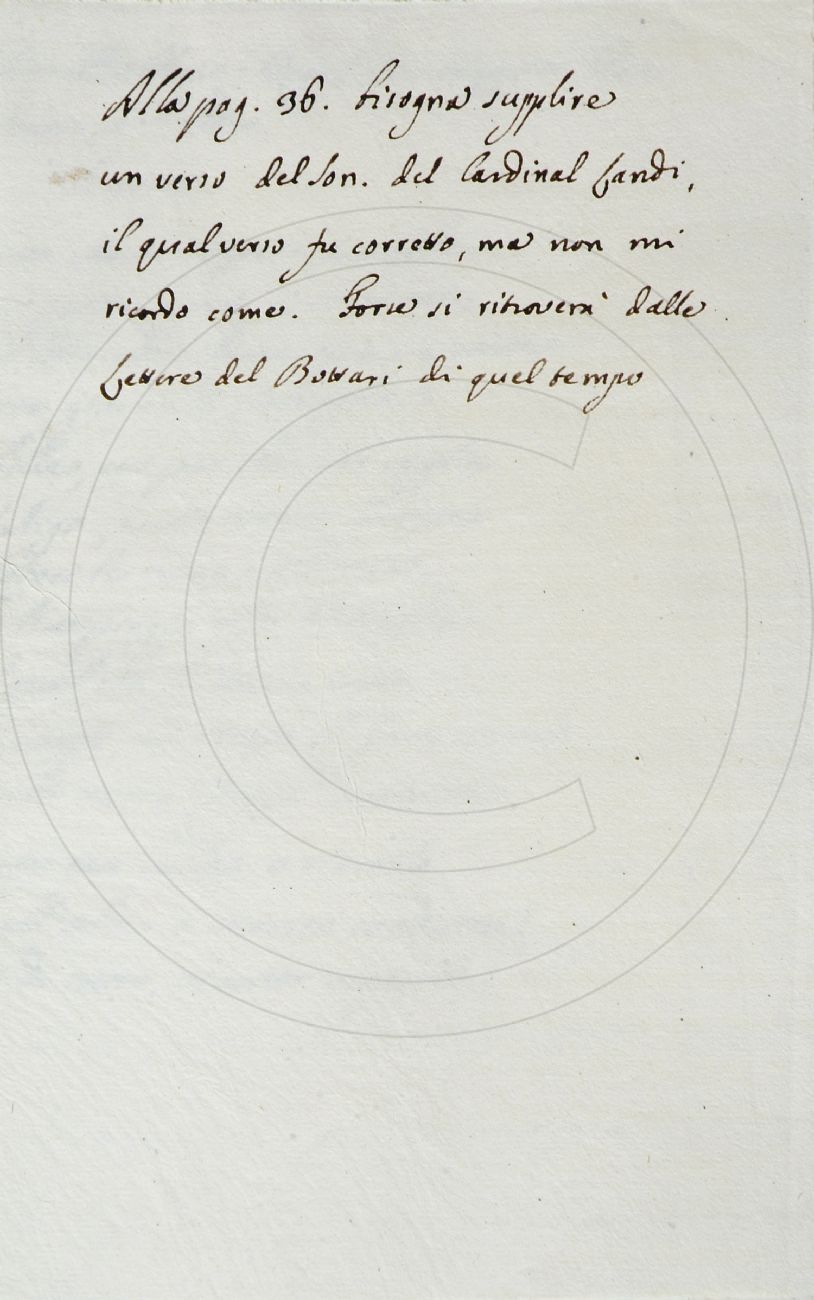 Alla pag. 36. bisogna supplire
un verso del Son. del Cardinal Landi,
il qual verso fu corretto, ma non mi
ricordo come. Forse si ritroverà dalle
Lettere del Bottari di quel tempo